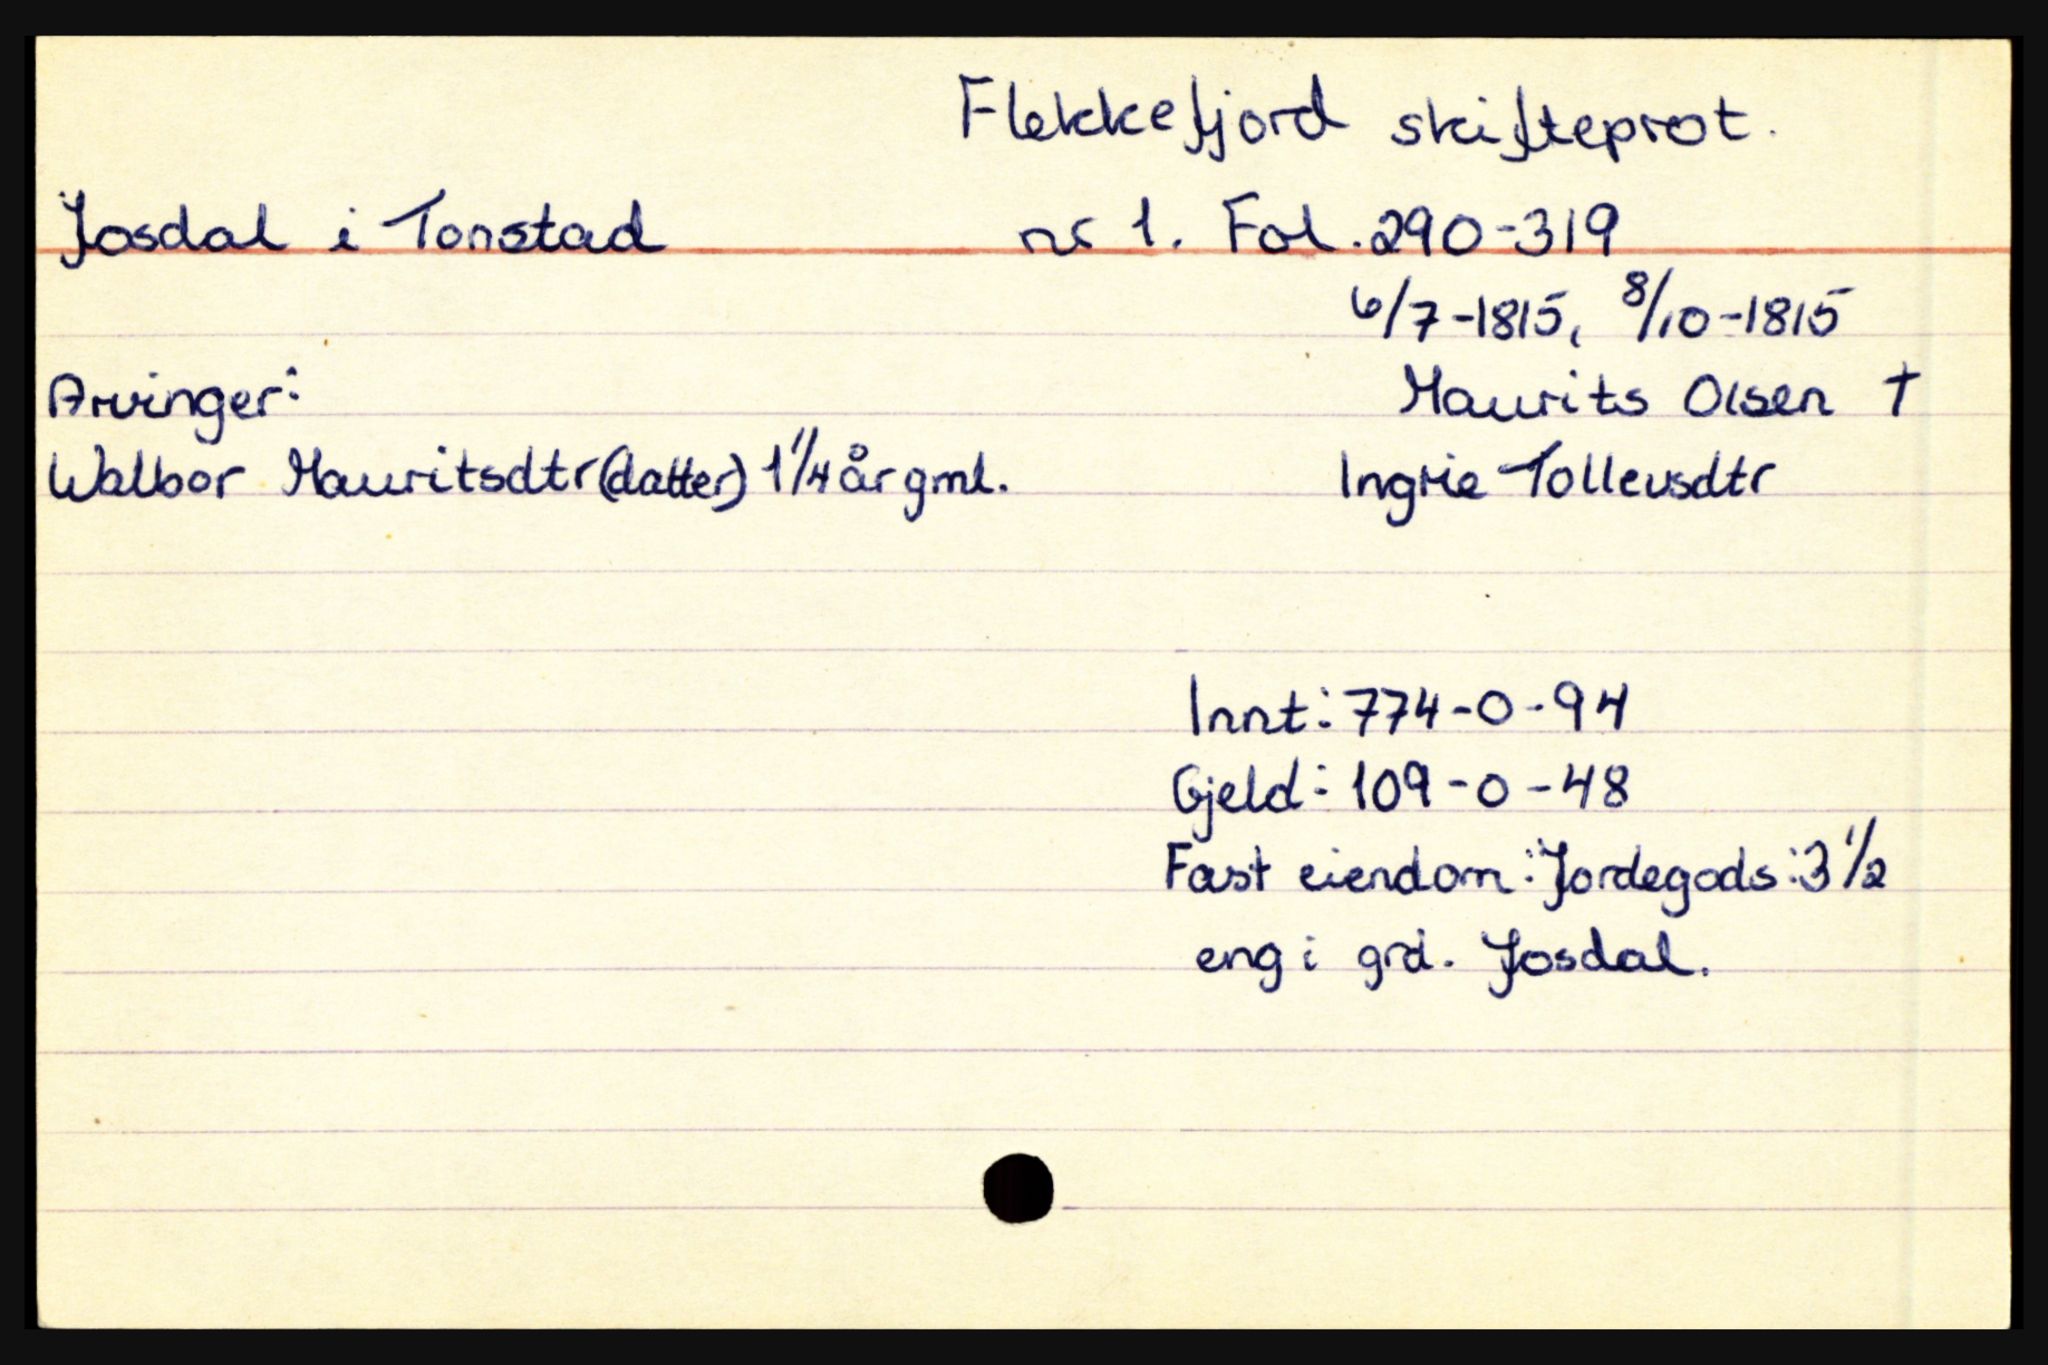 Flekkefjord skifteprot.
Josdal i Tonstad nr 1. Fol. 290-319
6/7-1815, 8/10-1815
Arvinger: Maurits Olsen †
Walbor Mauritsdtr (datter) 1 1/4 år gml. Ingrie Tollevsdtr
Innt: 774-0-94
Gjeld: 109-0-48
Fast eiendom: Jordegods: 3 1/2
eng i grd. Josdal.